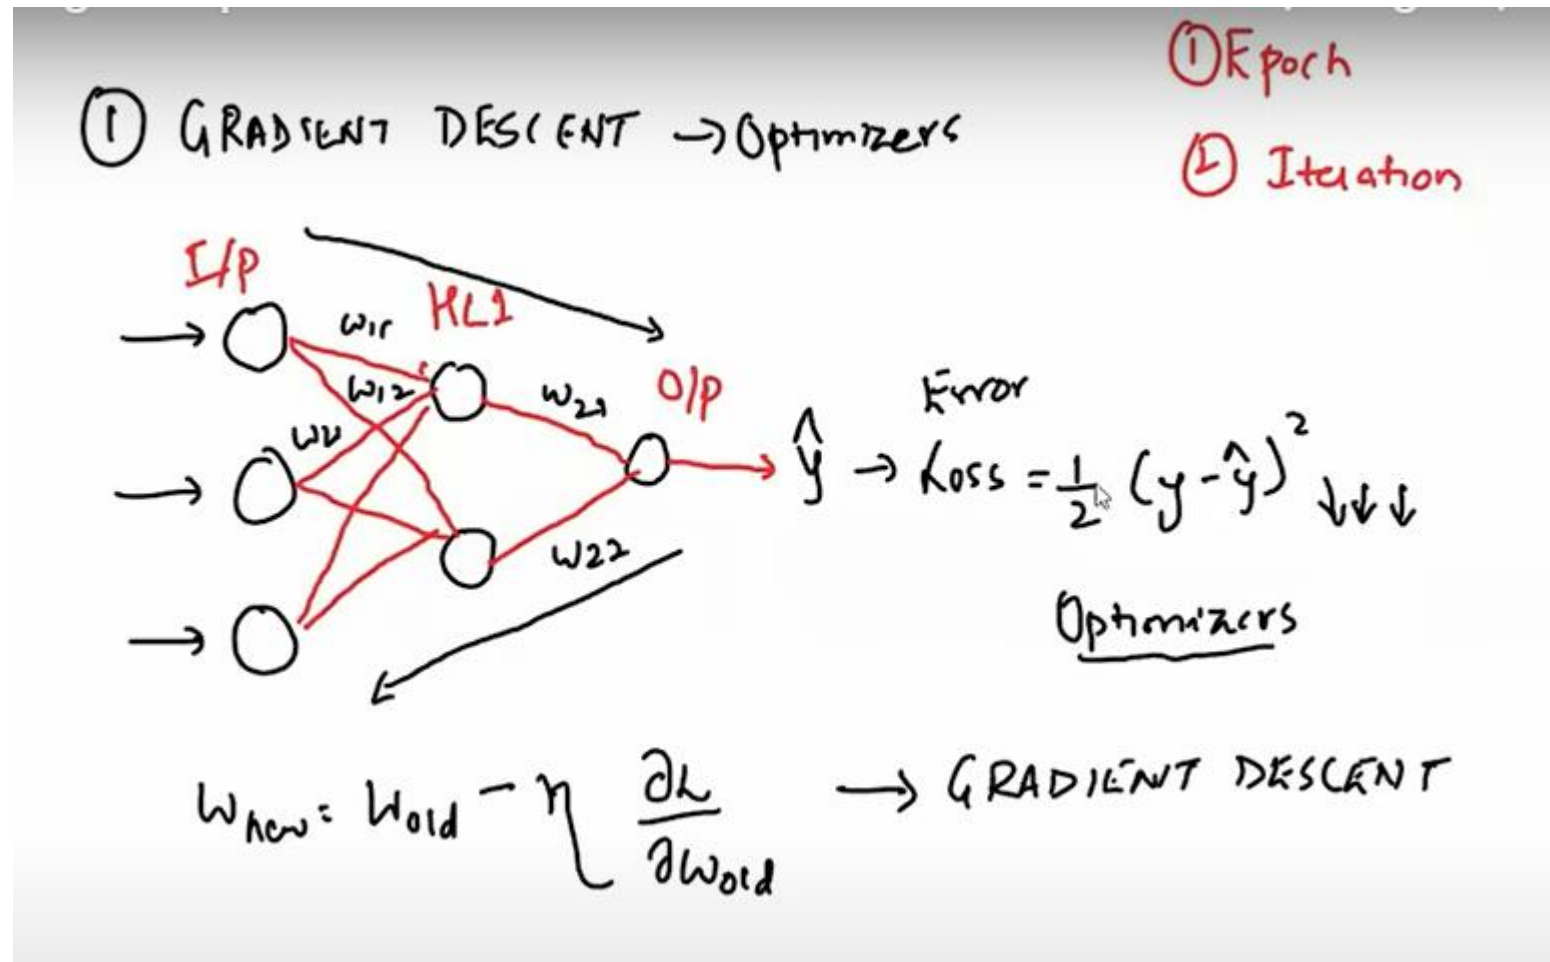 ① GRADIENT DESCENT → Optimizers
① Epoch
② Iteration
I/P
HL1
O/P
W11
W12
W21
W22
Error
ŷ → Loss = 1/2 (y - ŷ)² ↓↓↓
Optimizers
Wnew = Wold - η ∂L/∂Wold → GRADIENT DESCENT